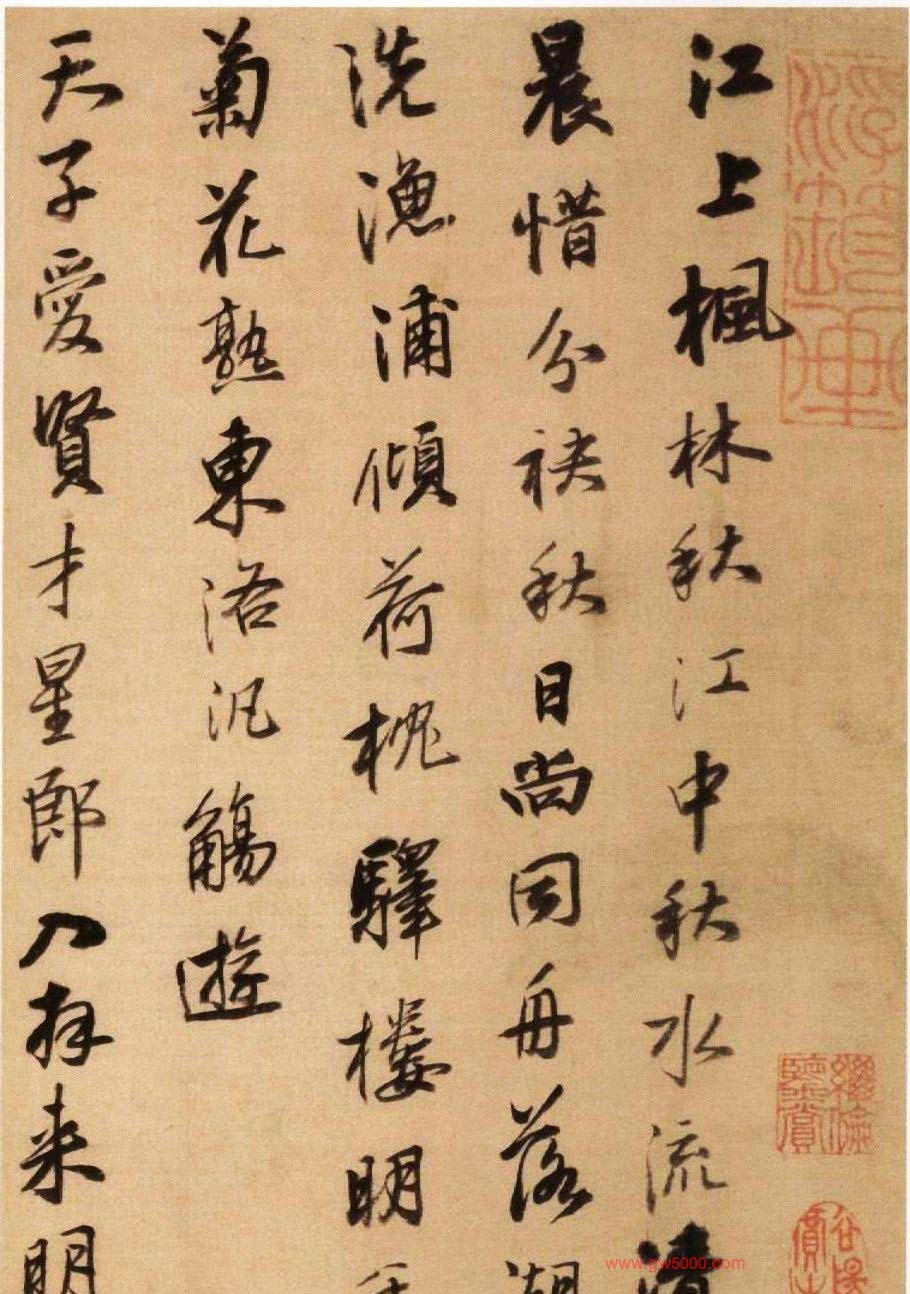 江上楓林秋江中秋水流清
晨惜分袂秋日尚同舟落潮
洗漁浦傾荷枕驛樓明年
菊花熟東洛汎觴遊
天子愛賢才星郎入拜来明
www.gw5000.com